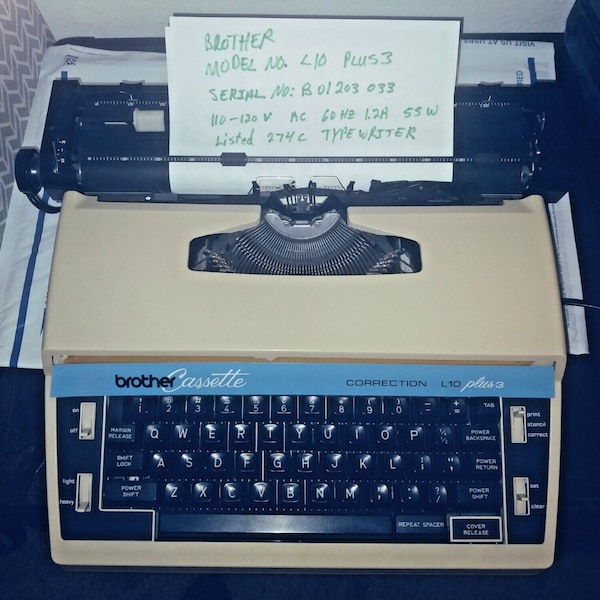 VISIT US AT USPS
RED
BROTHER
MODEL NO. L10 PLUS3
SERIAL NO: B01203 033
110-120 V AC 60 Hz 1.2A 55W
Listed 274C TYPEWRITER
brother Cassette CORRECTION L10 plus 3
on
off
2 3 4 5 6 7 8 9 0 - =
TAB
print
stencil
correct
MARGIN RELEASE
Q W E R T Y U I O P
POWER BACKSPACE
SHIFT LOCK
A S D F G H J K L
POWER RETURN
light
heavy
POWER SHIFT
Z X C V B N M , . ?
POWER SHIFT
set
clear
REPEAT SPACER
COVER RELEASE